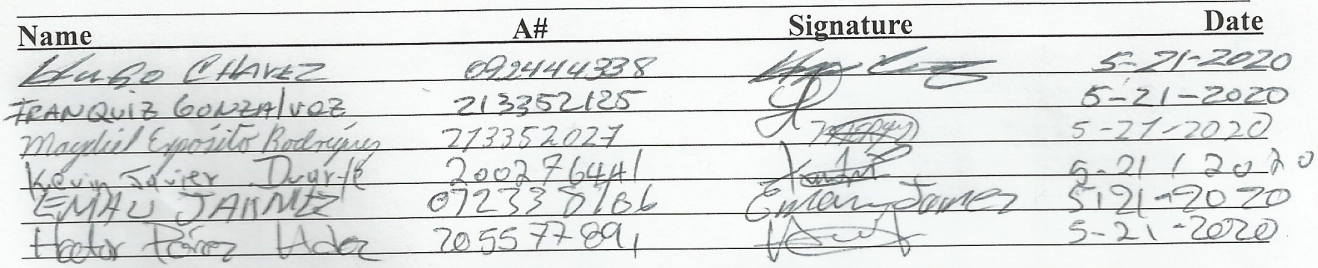 Name A# Signature Date
Hugo CHAVEZ 092444338 5-21-2020
FRANQUIZ GONZALVOZ 213352125 5-21-2020
Maydiel Expósito Rodríguez 213352027 5-21-2020
Kevin Javier Duarte 200276441 5-21/2020
EMAU JAMEZ 072338186 5-21-2020
Hector Pérez 205577891 5-21-2020